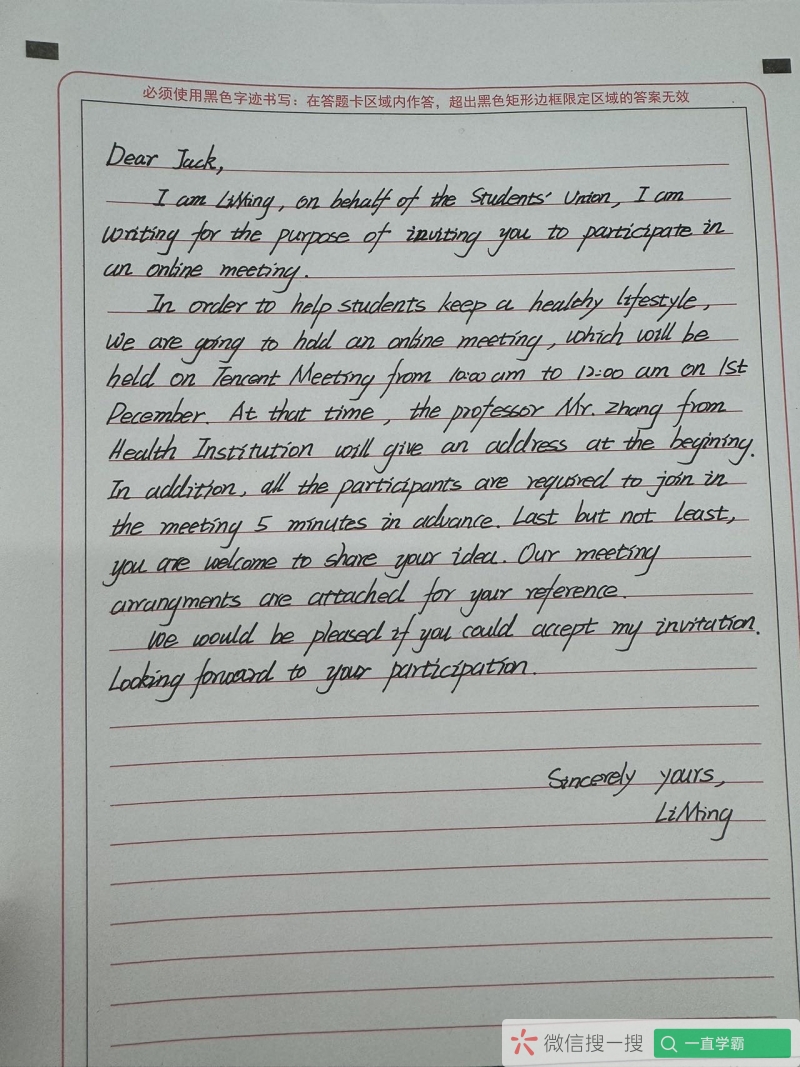 必须使用黑色字迹书写：在答题卡区域内作答，超出黑色矩形边框限定区域的答案无效
Dear Jack,
I am LiMing, on behalf of the Students' Union, I am
writing for the purpose of inviting you to participate in
an online meeting.
In order to help students keep a healthy lifestyle,
We are going to hold an online meeting, which will be
held on Tencent Meeting from 10:00 am to 12:00 am on 1st
December. At that time, the professor Mr. Zhang from
Health Institution will give an address at the begining.
In addition, all the participants are required to join in
the meeting 5 minutes in advance. Last but not least,
you are welcome to share your idea. Our meeting
arrangments are attached for your reference.
We would be pleased if you could accept my invitation.
Looking forward to your participation.
Sincerely yours,
LiMing
微信搜一搜
一直学霸